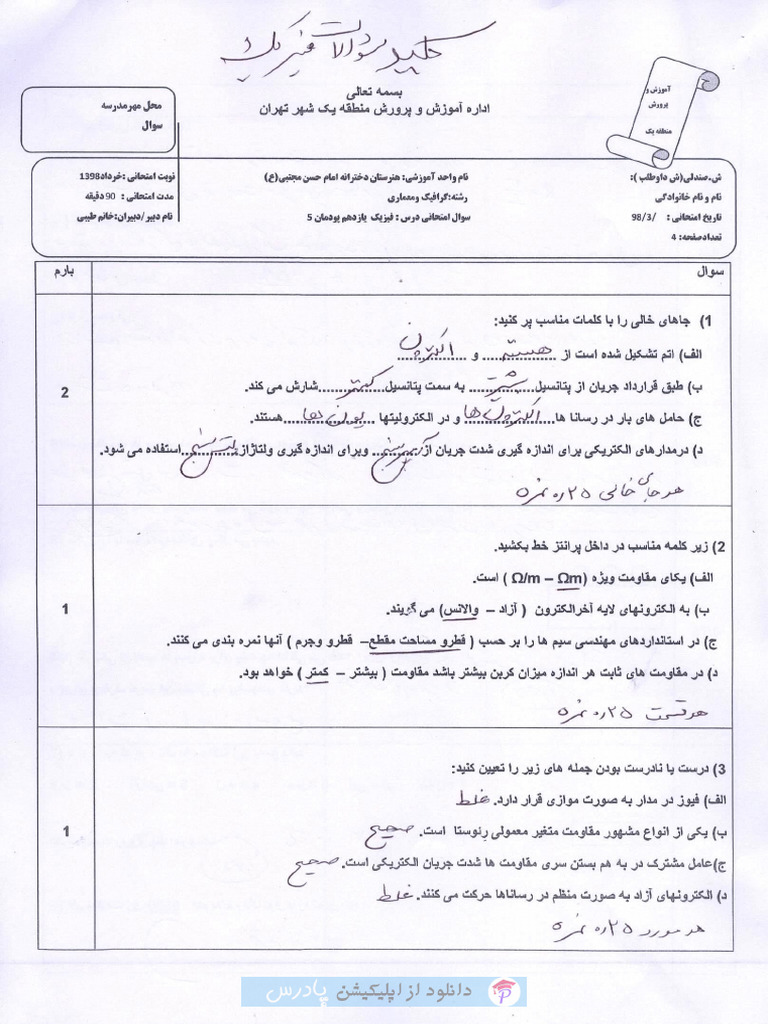 کلید سوالات فیزیک
بسمه تعالی
اداره آموزش و پرورش منطقه یک شهر تهران
آموزش و
پرورش
منطقه یک
محل مهرمدرسه
سوال
ش.صندلی(ش داوطلب ):
نام واحد آموزشی: هنرستان دخترانه امام حسن مجتبی(ع)
نوبت امتحانی :خرداد1398
نام و نام خانوادگی
رشته:گرافیک ومعماری
مدت امتحانی : 90دقیقه
تاریخ امتحانی : /98/3
سوال امتحانی درس : فیزیک یازدهم پودمان 5
نام دبیر /دبیران:خانم طیبی
تعدادصفحه: 4
سوال
بارم
1) جاهای خالی را با کلمات مناسب پر کنید:
الف) اتم تشکیل شده است از ...هسته... و ...الکترون...
ب) طبق قرارداد جریان از پتانسیل...بیشتر... به سمت پتانسیل...کمتر...شارش می کند.
ج) حامل های بار در رسانا ها...الکترون ها... و در الکترولیتها ...یون ها...هستند.
د) درمدارهای الکتریکی برای اندازه گیری شدت جریان از...آمپرسنج...وبرای اندازه گیری ولتاژاز...ولت سنج...استفاده می شود.
هر جای خالی ۰٫۲۵ نمره
2
2) زیر کلمه مناسب در داخل پرانتز خط بکشید.
الف) یکای مقاومت ویژه (Ω/m – Ωm ) است.
ب) به الکترونهای لایه آخرالکترون ( آزاد – والانس) می گویند.
ج) در استانداردهای مهندسی سیم ها را بر حسب ( قطرو مساحت مقطع– قطرو وجرم ) آنها نمره بندی می کنند.
د) در مقاومت های ثابت هر اندازه میزان کربن بیشتر باشد مقاومت ( بیشتر – کمتر ) خواهد بود.
هر قسمت ۰٫۲۵ نمره
1
3) درست یا نادرست بودن جمله های زیر را تعیین کنید:
الف) فیوز در مدار به صورت موازی قرار دارد. غلط
ب) یکی از انواع مشهور مقاومت متغیر معمولی رئوستا است. صحیح
ج)عامل مشترک در به هم بستن سری مقاومت ها شدت جریان الکتریکی است. صحیح
د) الکترونهای آزاد به صورت منظم در رساناها حرکت می کنند. غلط
هر مورد ۰٫۲۵ نمره
1
دانلود از اپلیکیشن پادرس